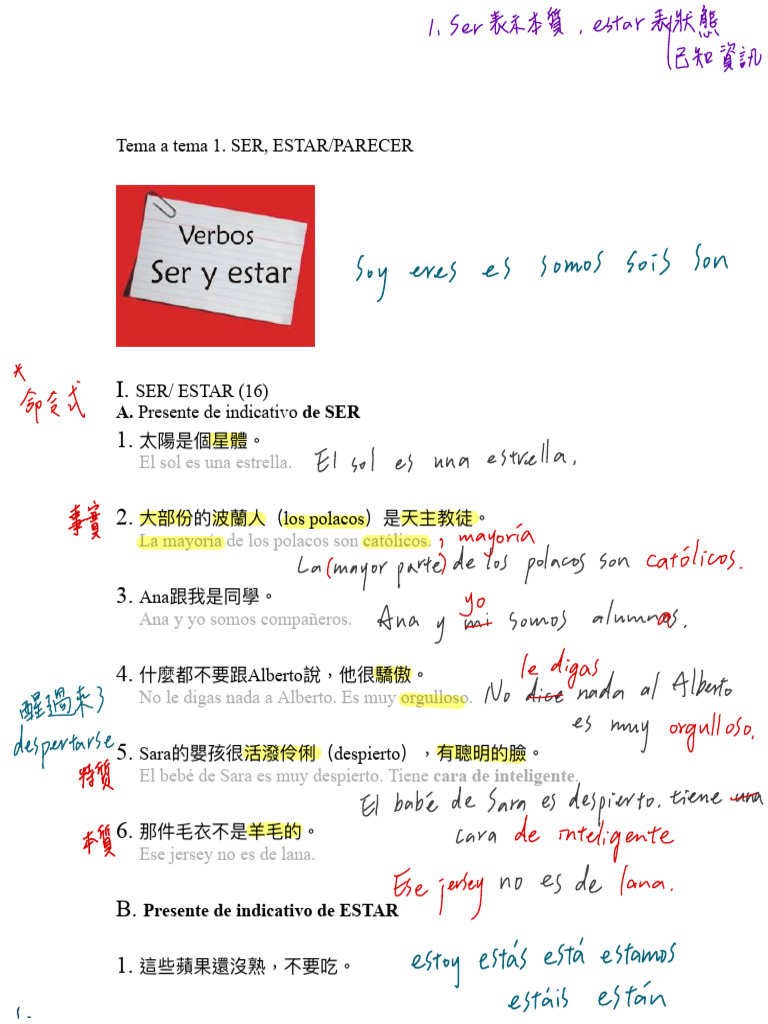 1. Ser 表示本質，estar 表狀態
已知資訊
Tema a tema 1. SER, ESTAR/PARECER
Verbos
Ser y estar
soy eres es somos sois son
* 命令式
I. SER/ ESTAR (16)
A. Presente de indicativo de SER
1. 太陽是個星體。
El sol es una estrella.
El sol es una estrella.
事實
2. 大部份的波蘭人（los polacos）是天主教徒。
La mayoría de los polacos son católicos.
, mayoría
La (mayor parte) de los polacos son católicos.
3. Ana跟我是同學。
Ana y yo somos compañeros.
yo
Ana y mi somos alumnos.
4. 什麼都不要跟Alberto說，他很驕傲。
No le digas nada a Alberto. Es muy orgulloso.
le digas
No dice nada al Alberto
es muy orgulloso.
醒過來了
despertarse
5. Sara的嬰孩很活潑伶俐（despierto），有聰明的臉。
El bebé de Sara es muy despierto. Tiene cara de inteligente.
特質
El babé de Sara es despierto. tiene una
cara de inteligente
6. 那件毛衣不是羊毛的。
Ese jersey no es de lana.
本質
Ese jersey no es de lana.
B. Presente de indicativo de ESTAR
1. 這些蘋果還沒熟，不要吃。
estoy estás está estamos
estáis están